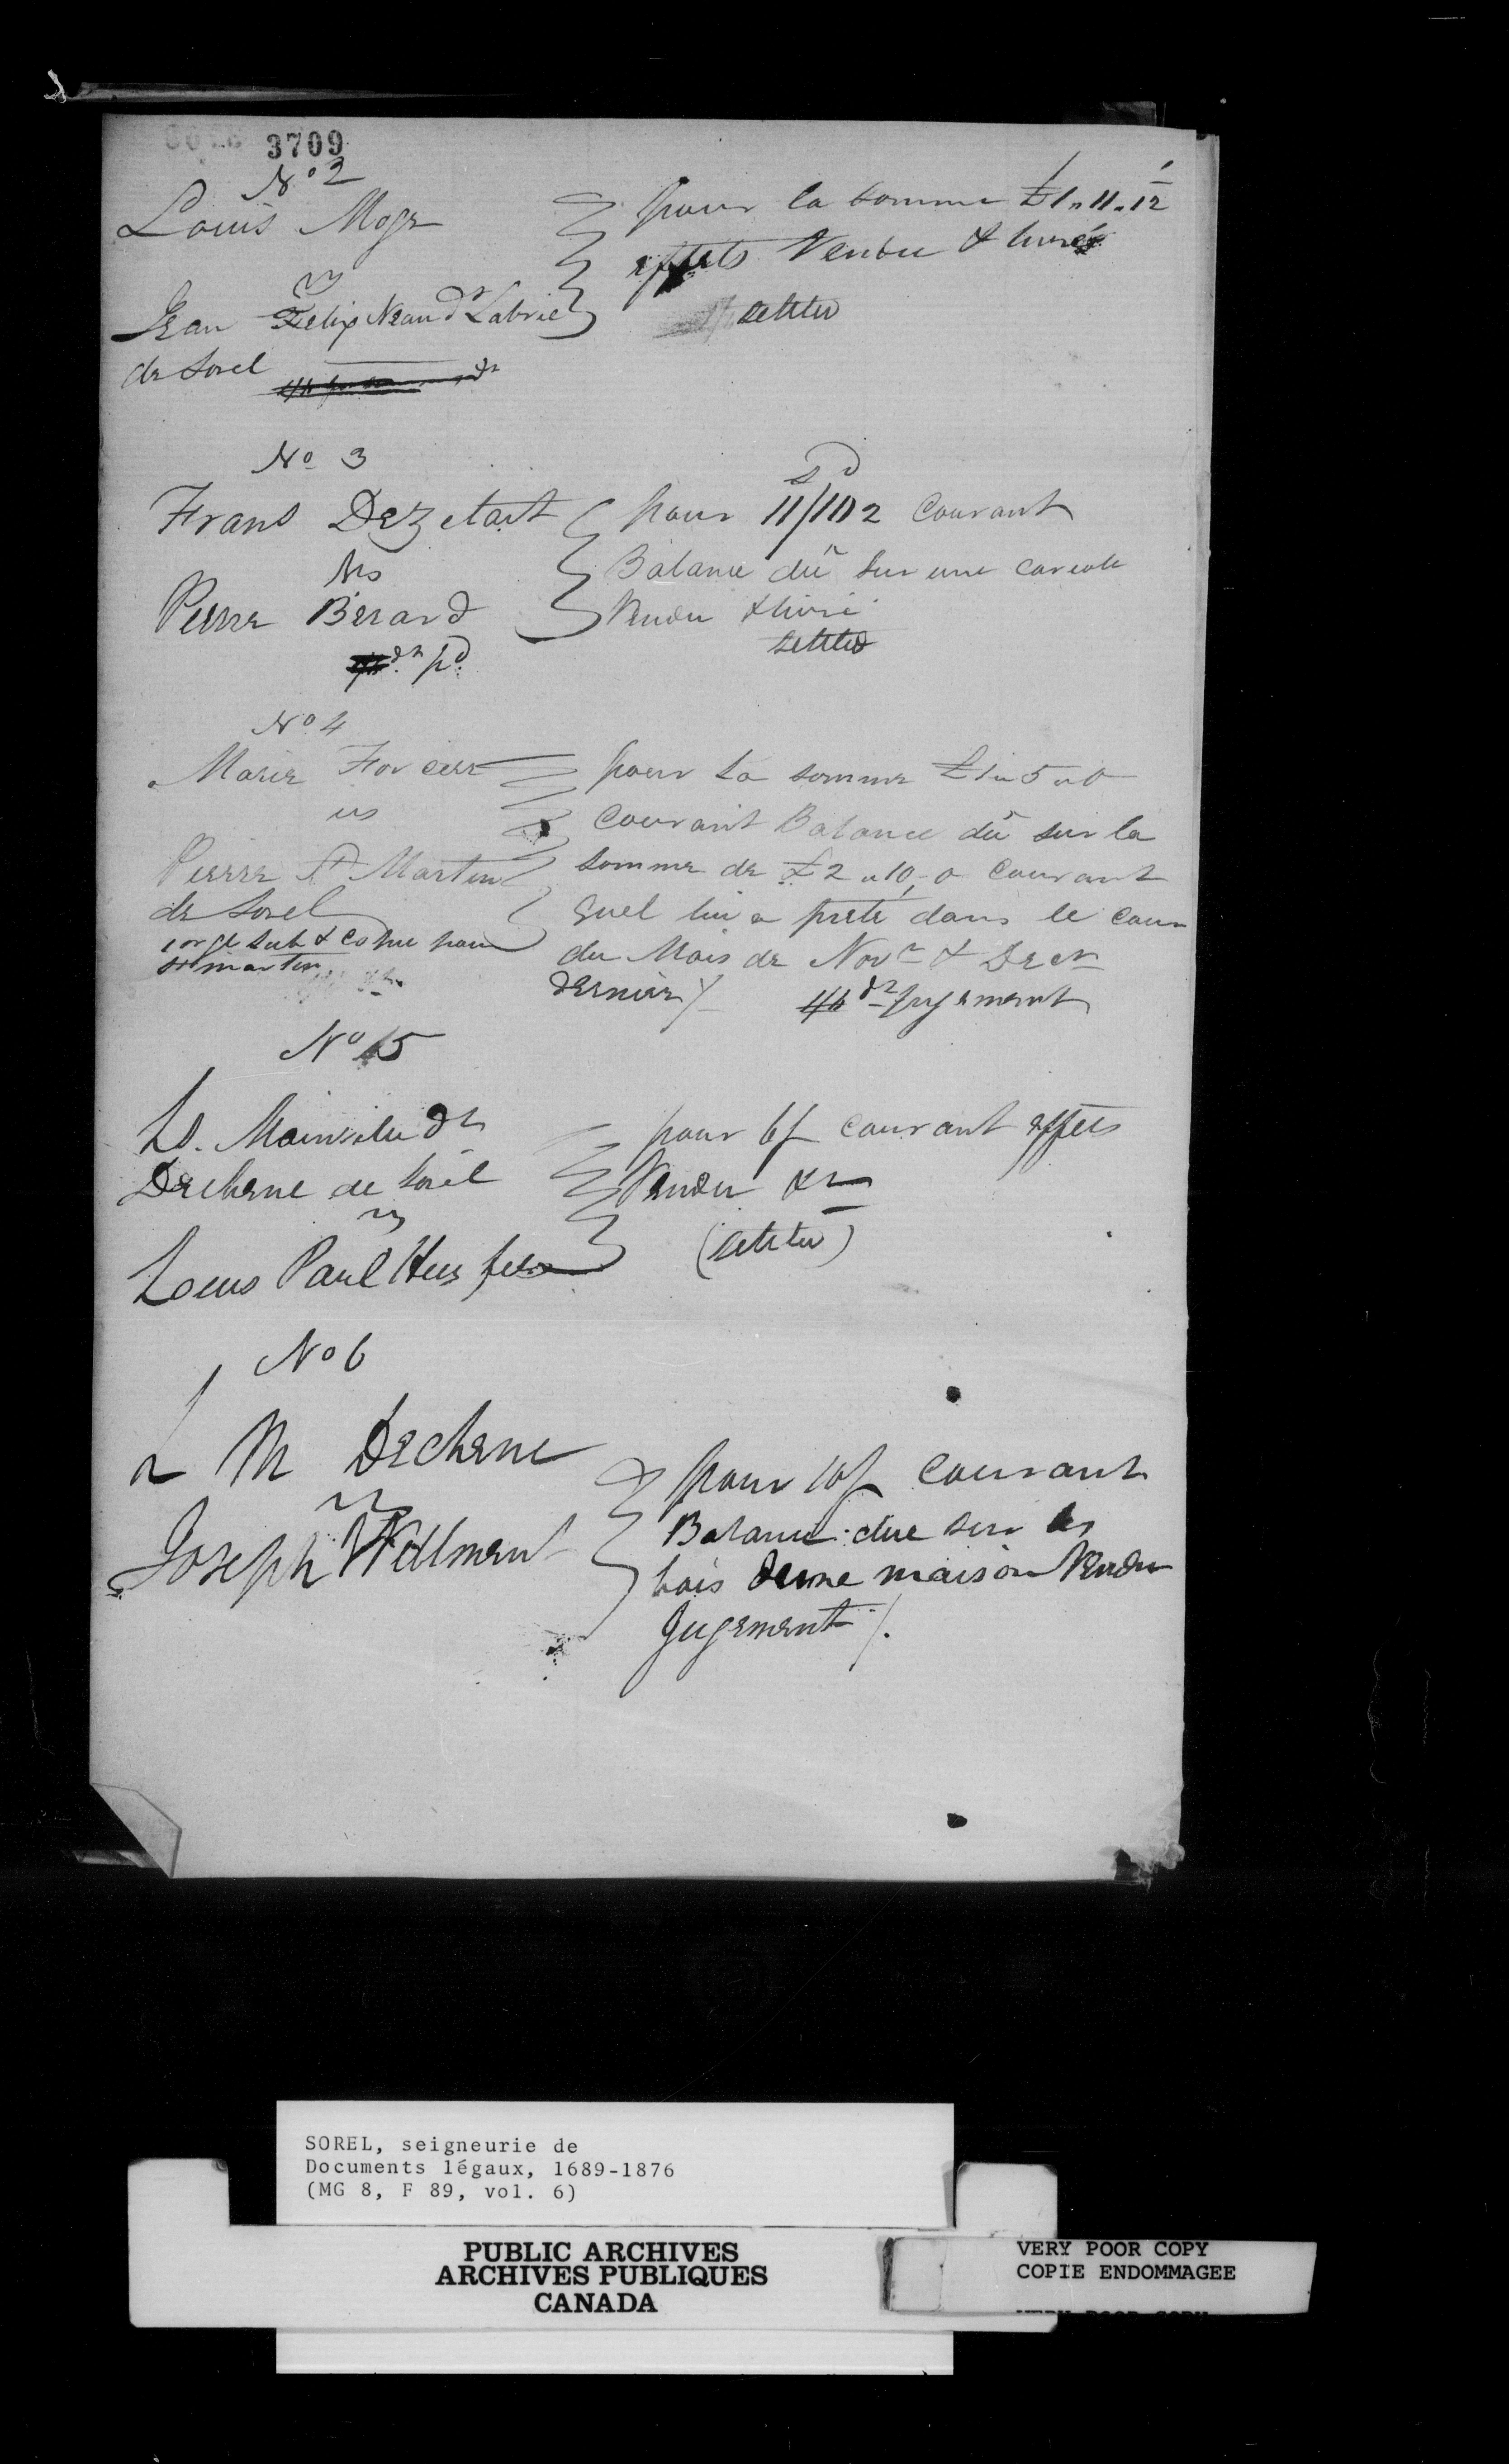 3709
No 2
Louis Moge
vs
Jean Felix Neau dr Labrie
de Sorel
pour la somme £1"11"12
effets Vendu & livrés
settled
No 3
Frans Dezetart
vs
Pierre Berard
dr pd
pour 11/10 2 Courant
Balance dû sur une cariole
Vendu & livré
settled
No 4
Marie Forcier
vs
Pierre St Martin
de Sorel
St martin
pour la somme £1"5"0
Courant Balance dû sur la
somme de £2"10,0 Courant
quel lui a preté dans le cour
du Mois de Novr & Decr
dernier/ dr jugement
No 5
Ls. Mainville dr
Dechene de Sorel
vs
Louis Paul Hus fils
pour 6/ courant effets
Vendu &c
(settled)
No 6
L M Dechene
vs
Joseph Wellment
pour 10/ Courant
Balance due sur les
bois deune maison Vendu
Jugement /.
SOREL, seigneurie de
Documents légaux, 1689-1876
(MG 8, F 89, vol. 6)
PUBLIC ARCHIVES
ARCHIVES PUBLIQUES
CANADA
VERY POOR COPY
COPIE ENDOMMAGEE
VERY POOR COPY